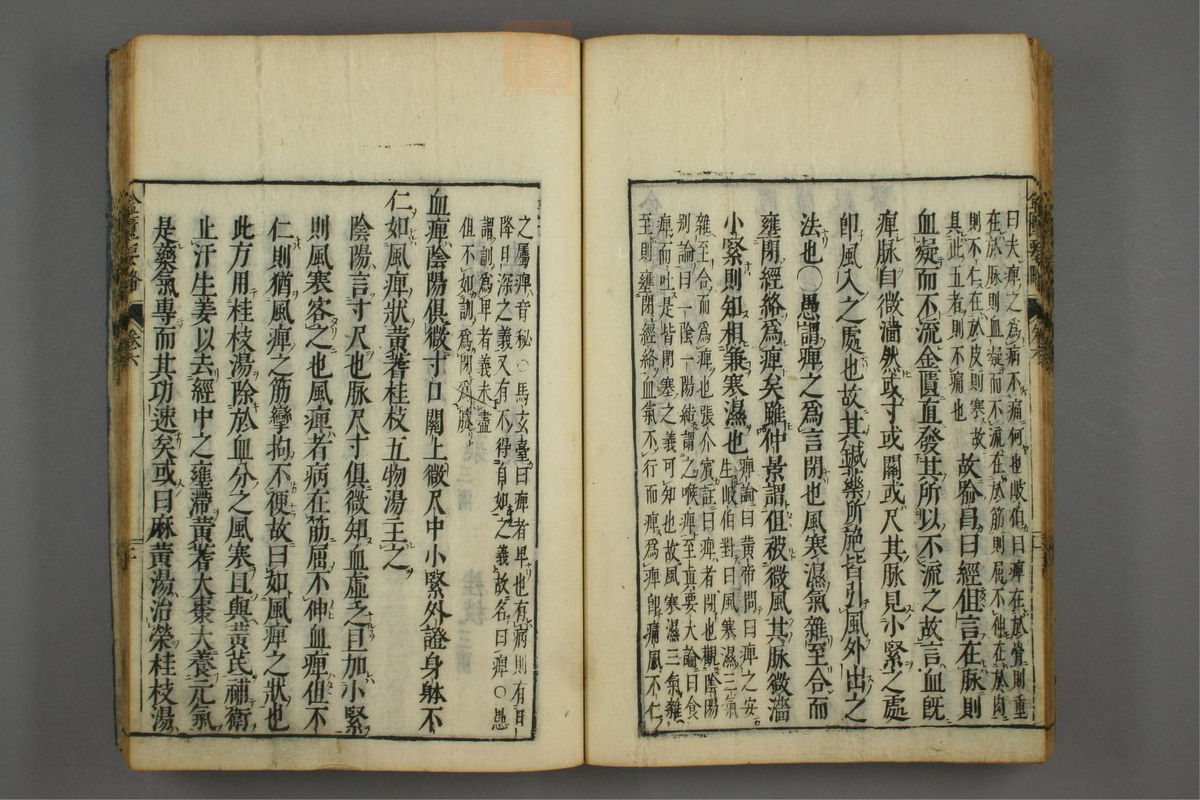 曰夫痺之爲病不痛何也岐伯曰痺在於骨則重
在於脉則血凝而不流在於筋則屈不伸在於肉
則不仁在於皮則寒故
具此五者則不痛也
故喩昌曰經但言在脉則
血凝而不流金匱直發其所以不流之故言血旣
痺脉自微濇然或寸或關或尺其脉見小緊之處
卽風入之處也故其鍼藥所施皆引風外出之
法也○愚謂痺之爲言閉也風寒濕氣雜至合而
壅閉經絡爲痺矣雖仲景謂但被微風其脉微濇
小緊則知相兼寒濕也
痺論曰黃帝問曰痺之安
生岐伯對曰風寒濕三氣
雜至合而爲痺也張介賓註曰痺者閉也觀陰陽
別論曰一陰一陽結謂之喉痺至眞要大論曰食
痺而吐是皆閉塞之義可知也故風寒濕三氣雜
至則壅閉經絡血氣不行而痺爲痺卽痛風不仁
之屬痺音秘○馬玄臺曰痺者卑也有病則有日
降日深之義又有不得自如之義故名曰痺○愚
謂訓爲卑者義未盡
但不如訓爲閉爲勝
血痺陰陽俱微寸口關上微尺中小緊外證身躰不
仁如風痺狀黃蓍桂枝五物湯主之
陰陽言寸尺也脉尺寸俱微知血虛乏且加小緊
則風寒客之也風痺者病在筋屈不伸血痺但不
仁則猶風痺之筋攣拘不便故曰如風痺之狀也
此方用桂枝湯除於血分之風寒且與黃芪補衛
止汗生姜以去經中之壅滯黃蓍大棗大養元氣
是藥氣專而其功速矣或曰麻黃湯治榮桂枝湯
卷六